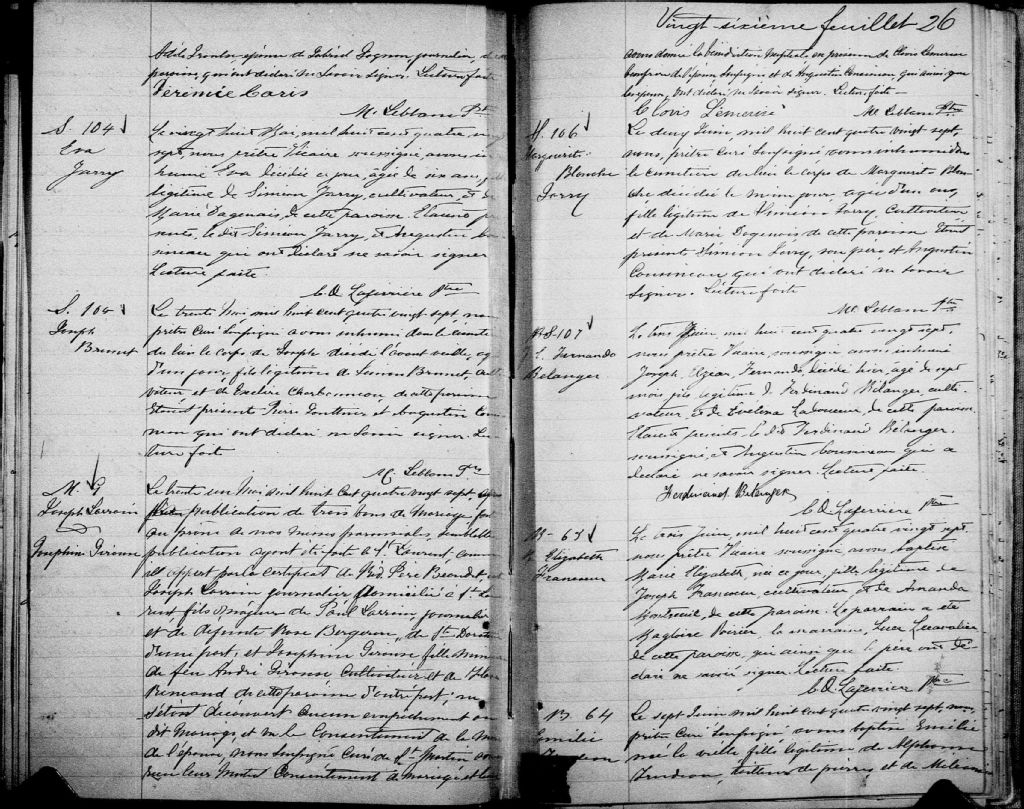 épouse de Gabriel Gagnon, journalier, de
paroisse, qui ont déclaré ne savoir signer. Lecture faite
Jérémie Caris
M. Leblanc Ptre
S. 104
Eva
Jarry
Le vingt huit Mai, mil huit cent quatre vingt
sept, nous prêtre Vicaire soussigné, avons in
humé Eva décédée ce jour, agée de six ans, fille
légitime de Siméon Jarry, cultivateur, et de
Marie Dagenais, de cette paroisse. Etaient pré
sents, le dit Siméon Jarry, et Augustin
qui ont déclaré ne savoir signer
Lecture faite
C. O. Laferrière Ptre
S. 105
Joseph
Brunet
Le trente Mai mil huit cent quatre vingt sept, nous
prêtre Curé soussigné avons inhumé dans le cimetière
du lieu le corps de Joseph décédé l'avant veille, agé
d'un jour, fils légitime de Brunet, culti
vateur et de Charbonneau de cette paroisse
Etaient présents Pierre et Augustin Cou
sineau qui ont déclaré ne savoir signer. Lec
ture faite
M. Leblanc Ptre
M. 9
Joseph Lorrain
&
Josephine Girouse
Le trente un Mai mil huit cent quatre vingt sept, après
publication de trois bans de Mariage, faite
au prône de nos messes paroissiales, semblable
publication ayant été faite à St. Laurent, comme
il appert par le certificat du Rvd Père Beaudet, entre
Joseph Lorrain journalier domicilié à St. Lau
rent fils majeur de Paul Lorrain, journalier
et de défunte Rose Bergeron, de Ste. Dorothée
d'une part, et Josephine Girouse fille mineure
de feu André Girouse Cultivateur et de
de cette paroisse d'autre part, ne
s'étant découvert aucun empêchement au
dit Mariage et vu le Consentement de la mère
de l'épouse, nous soussigné Curé de St. Martin avons
reçu leur Mutuel Consentement de mariage et leur
Vingt-sixième feuillet 26
avons donné la bénédiction nuptiale en présence de Clovis Lemerise
de l'époux soussigné et de Augustin Cousineau, qui ainsi que
les époux, ont déclaré ne savoir signer. Lecture faite —
Clovis Lemerise M. Leblanc Ptre
S. 106
Marguerite
Blanche
Jarry
Le deux Juin mil huit cent quatre vingt sept,
nous, prêtre Curé soussigné avons inhumé dans
le cimetière du lieu le corps de Marguerite Blan
che décédée le même jour, agée d'un an,
fille légitime de Siméon Jarry, Cultivateur
et de Marie Dagenais de cette paroisse Etaient
présents Siméon Jarry, son père et Augustin
Cousineau qui ont déclaré ne savoir
signer. Lecture faite
M. Leblanc Ptre
S-107
J. E. Fernando
Bélanger
Le trois Juin, mil huit cent quatre vingt sept,
nous prêtre Vicaire soussigné avons inhumé
Joseph, Elzéar, Fernando, décédé hier, agé de sept
mois fils légitime de Ferdinand Bélanger, culti
vateur, et de Evélina Ladouceur, de cette paroisse.
Etaient présents, le dit Ferdinand Bélanger,
soussigné, et Augustin Cousineau qui a
déclaré ne savoir signer. Lecture faite.
Ferdinand Belanger
C. O. Laferrière Ptre
B- 63
M. Elizabeth
Francoeur
Le trois Juin, mil huit cent quatre vingt sept
nous prêtre Vicaire soussigné, avons baptisé
Marie Elizabeth, née ce jour, fille légitime de
Joseph Francoeur, cultivateur, et de Amanda
Montreuil de cette paroisse. Le parrain a été
Magloire Poirier, la marraine, Lecavalier
de cette paroisse, qui ainsi que le père ont dé
claré ne savoir signer. Lecture faite.
C. O. Laferrière Ptre
B. 64
Emilie
Le sept Juin mil huit cent quatre vingt sept nous,
prêtre Curé soussigné, avons baptisé Emilie
née la veille fille légitime de Alphonse
tailleur de pierres, et de